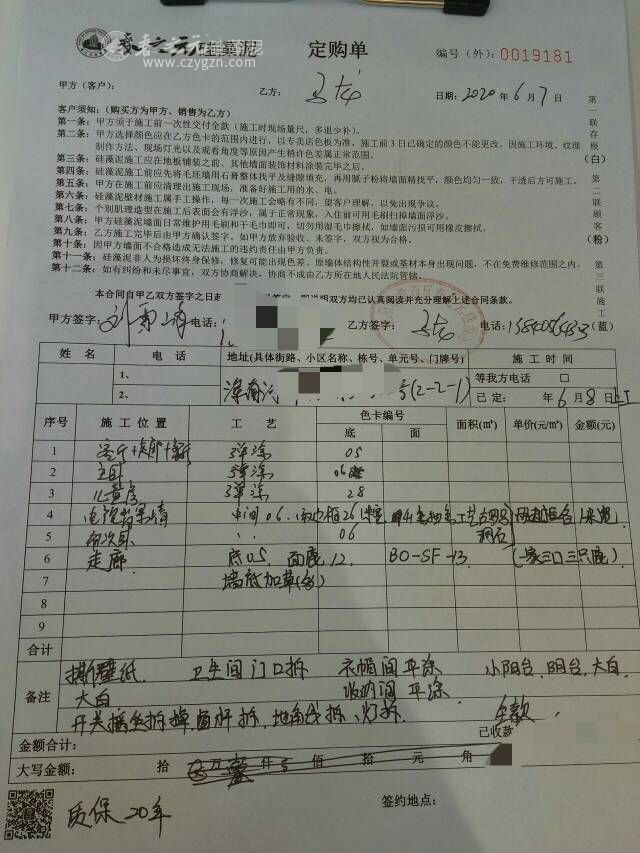 春之元硅藻泥
www.czygzn.com
定购单
编号（外）：0019181
甲方（客户）：
乙方：
日期：2020年6月7日
客户须知：（购买方为甲方、销售为乙方）
第一条：甲方须于施工前一次性交付全款（施工时现场量尺，多退少补）。
第二条：甲方选择颜色应在乙方色卡的范围内进行，以专卖店色板为准，施工前3日已确定的颜色不能更改，因施工环境、纹理
制作方法、现场灯光以及观看角度等原因产生稍许色差属正常范围。
第三条：硅藻泥施工应在地板铺装之前、其他墙面装饰材料涂装完毕之后。
第四条：硅藻泥施工前应先将毛坯墙用石膏整体找平及缝隙填充，再用腻子粉将墙面精找平，颜色均匀一致，干透后方可施工。
第五条：甲方在施工前应清理出施工现场，准备好施工用的水、电。
第六条：硅藻泥肌材施工属手工操作，每一次施工会略有不同，望客户理解，以免出现争议。
第七条：个别肌理造型在施工后表面会有浮沙，属于正常现象，入住前可用毛刷扫掉墙面浮沙。
第八条：甲方硅藻泥墙面日常维护用毛刷和干毛巾即可，切勿用湿毛巾擦拭，如墙面污损可用橡皮擦拭。
第九条：乙方施工完毕后由甲方确认签字，如甲方放弃验收、未签字，双方视为合格。
第十条：因甲方墙面不合格造成无法施工的违约责任由甲方负责。
第十一条：硅藻泥非人为损坏终身保修，修复可能出现色差。原墙体结构性开裂或基材本身出现问题，不在免费维修范围之内。
第十二条：如有纠纷和未尽事宜，双方协商解决，协商不成由乙方所在地人民法院管辖。
第一联存根（白）
第二联顾客（粉）
第三联施工（蓝）
本合同自甲乙双方签字之日起
说明双方均已认真阅读并充分理解上述合同条款。
甲方签字： 电话：
乙方签字： 电话：
姓名 电话 地址（具体街路、小区名称、栋号、单元号、门牌号） 施工时间
1、 等我方电话 □
2、 号(2-2-1) 已定： 年6月8日
序号 施工位置 工艺 色卡编号 面积(㎡) 单价(元/㎡) 金额(元)
底 面
1 弹涂 05
2 主卧 弹涂 06
3 儿童房 弹涂 28
4 电视背景墙 中间06
5 06
6 走廊 底05 面 12. BO-SF-13 (一家三口三只鹿)
7 墙底加草
8
9
合计
备注
壁纸 卫生间门口拆 衣帽间平涂 小阳台，阳台，大白
大白 平涂
开关插座拆掉 窗帘杆拆、地角线拆、灯拆
全款
已收款
金额合计：
大写金额： 拾 万 仟 佰 拾 元 角
签约地点：
质保20年